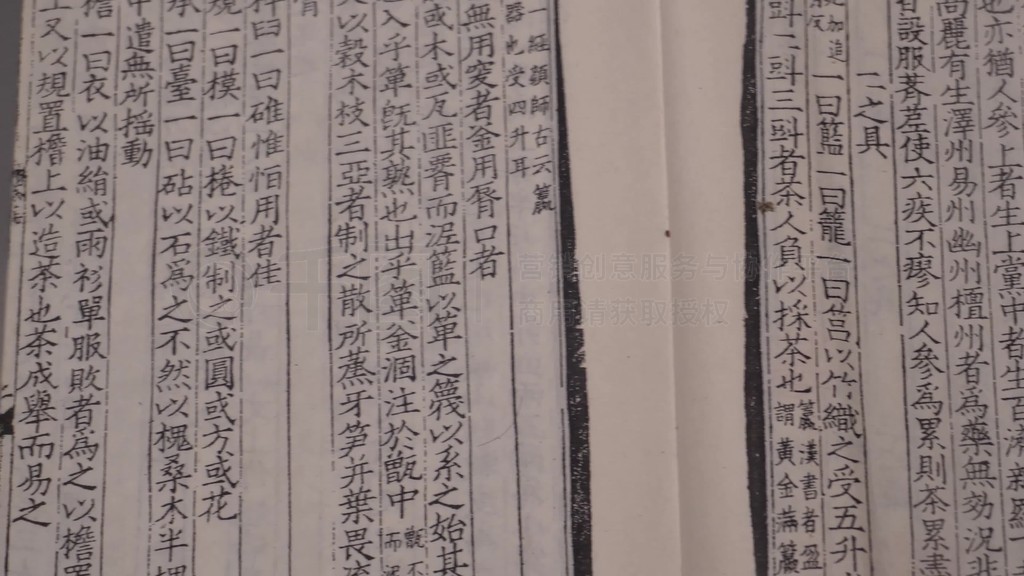 也亦猶人參上者生上黨中者生百濟新羅
高麗有生澤州易州幽州檀州者為藥無効況非
者設服薺苨使六疾不瘳知人參為累則茶累
二之具
加追反
一曰籃一曰籠一曰筥以竹織之受五升
㪷二㪷三㪷者茶人負以採茶也
籯漢書者盈
謂黃金滿籯
一經顏師古云籯
器也受四升耳
無用突者釜用脣口者
或木或瓦匪腰而泥籃以箄之篾以系之始其
入乎箄既其熟也出乎箄釜涸注於甑中
甑不
而
以榖木枝三亞者制之散所蒸牙笋并葉畏
杵臼一曰碓惟恒用者佳
規一曰模一曰棬以鐵制之或圓或方或花
承一曰臺一曰砧以石為之不然以槐桑木半埋
中遣無所搖動
檐一曰衣以油絹或雨衫單服敗者為之以檐置
上又以規置檐上以造茶也茶成舉而易之